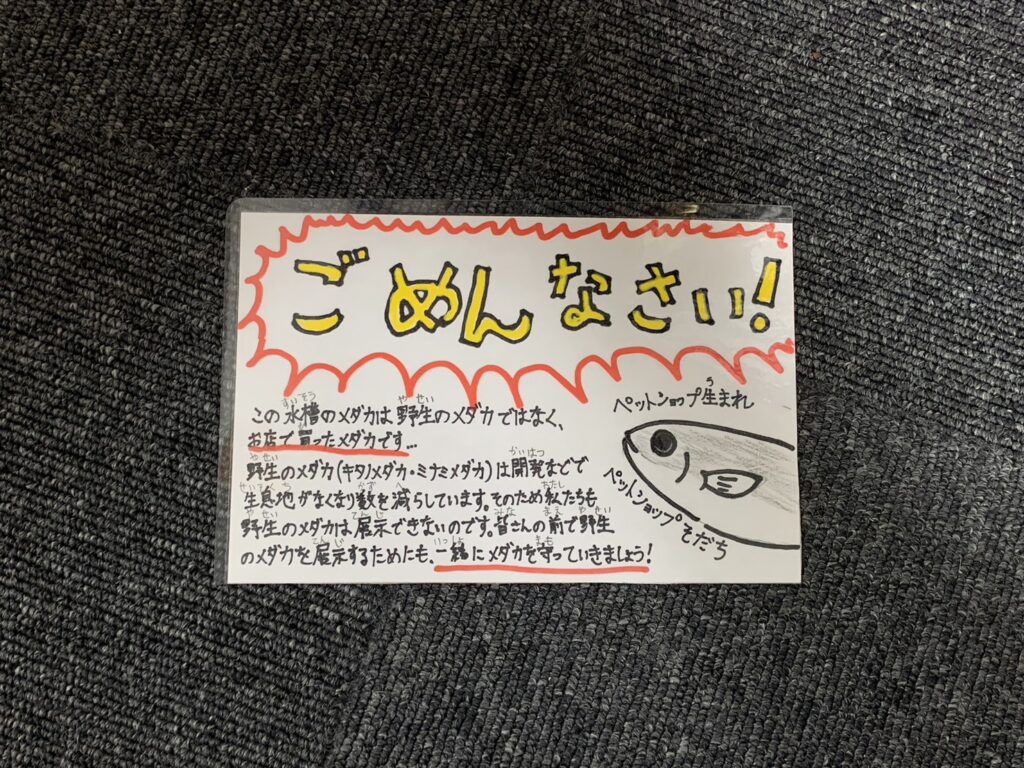 ごめんなさい!
この水槽のメダカは野生のメダカではなく、
お店で買ったメダカです…
野生のメダカ(キタノメダカ・ミナミメダカ)は開発などで
生息地がなくなり数を減らしています。そのため私たちも
野生のメダカは、展示できないのです。皆さんの前で野生
のメダカを展示するためにも、一緒にメダカを守っていきましょう!
ペットショップ生まれ
ペットショップそだち